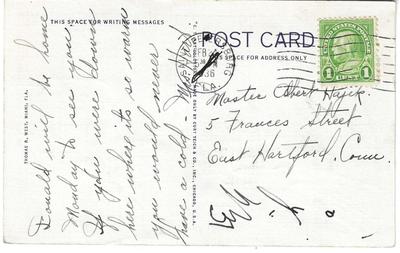 THIS SPACE FOR WRITING MESSAGES
POST CARD
THIS SPACE FOR ADDRESS ONLY
Donald will be home
Monday to see you.
If you were down
here where it's so warm
you would never
have a cold -
THOMAS A. WEST, MIAMI, FLA.
ST. PETERSBURG
FEB
1936
FLA.
UNITED STATES POSTAGE
1 CENT 1
Master
5 Frances Street
East Hartford, Conn.